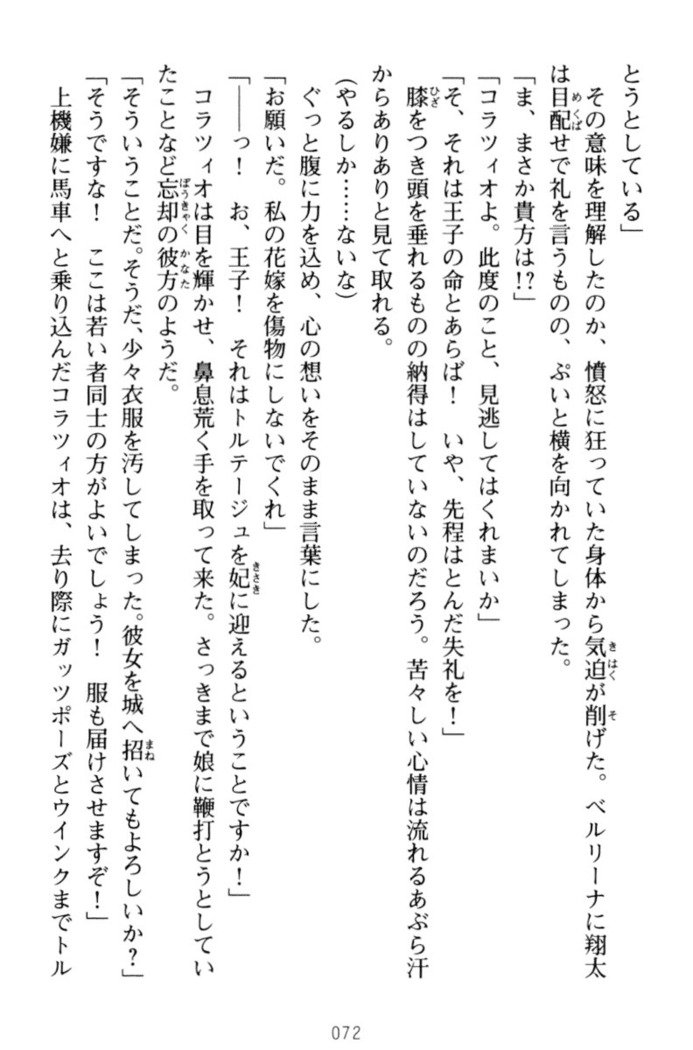 とうとしている」
　その意味を理解したのか、憤怒に狂っていた身体から気迫が削げた。ベルリーナに翔太
は目配せで礼を言うものの、ぷいと横を向かれてしまった。
「ま、まさか貴方は!?」
「コラツィオよ。此度のこと、見逃してはくれまいか」
「そ、それは王子の命とあらば！　いや、先程はとんだ失礼を！」
　膝をつき頭を垂れるものの納得はしていないのだろう。苦々しい心情は流れるあぶら汗
からありありと見て取れる。
（やるしか……ないな）
　ぐっと腹に力を込め、心の想いをそのまま言葉にした。
「お願いだ。私の花嫁を傷物にしないでくれ」
「――っ！　お、王子！　それはトルテージュを妃に迎えるということですか！」
　コラツィオは目を輝かせ、鼻息荒く手を取って来た。さっきまで娘に鞭打とうとしてい
たことなど忘却の彼方のようだ。
「そういうことだ。そうだ、少々衣服を汚してしまった。彼女を城へ招いてもよろしいか？」
「そうですな！　ここは若い者同士の方がよいでしょう！　服も届けさせますぞ！」
　上機嫌に馬車へと乗り込んだコラツィオは、去り際にガッツポーズとウインクまでトル
072